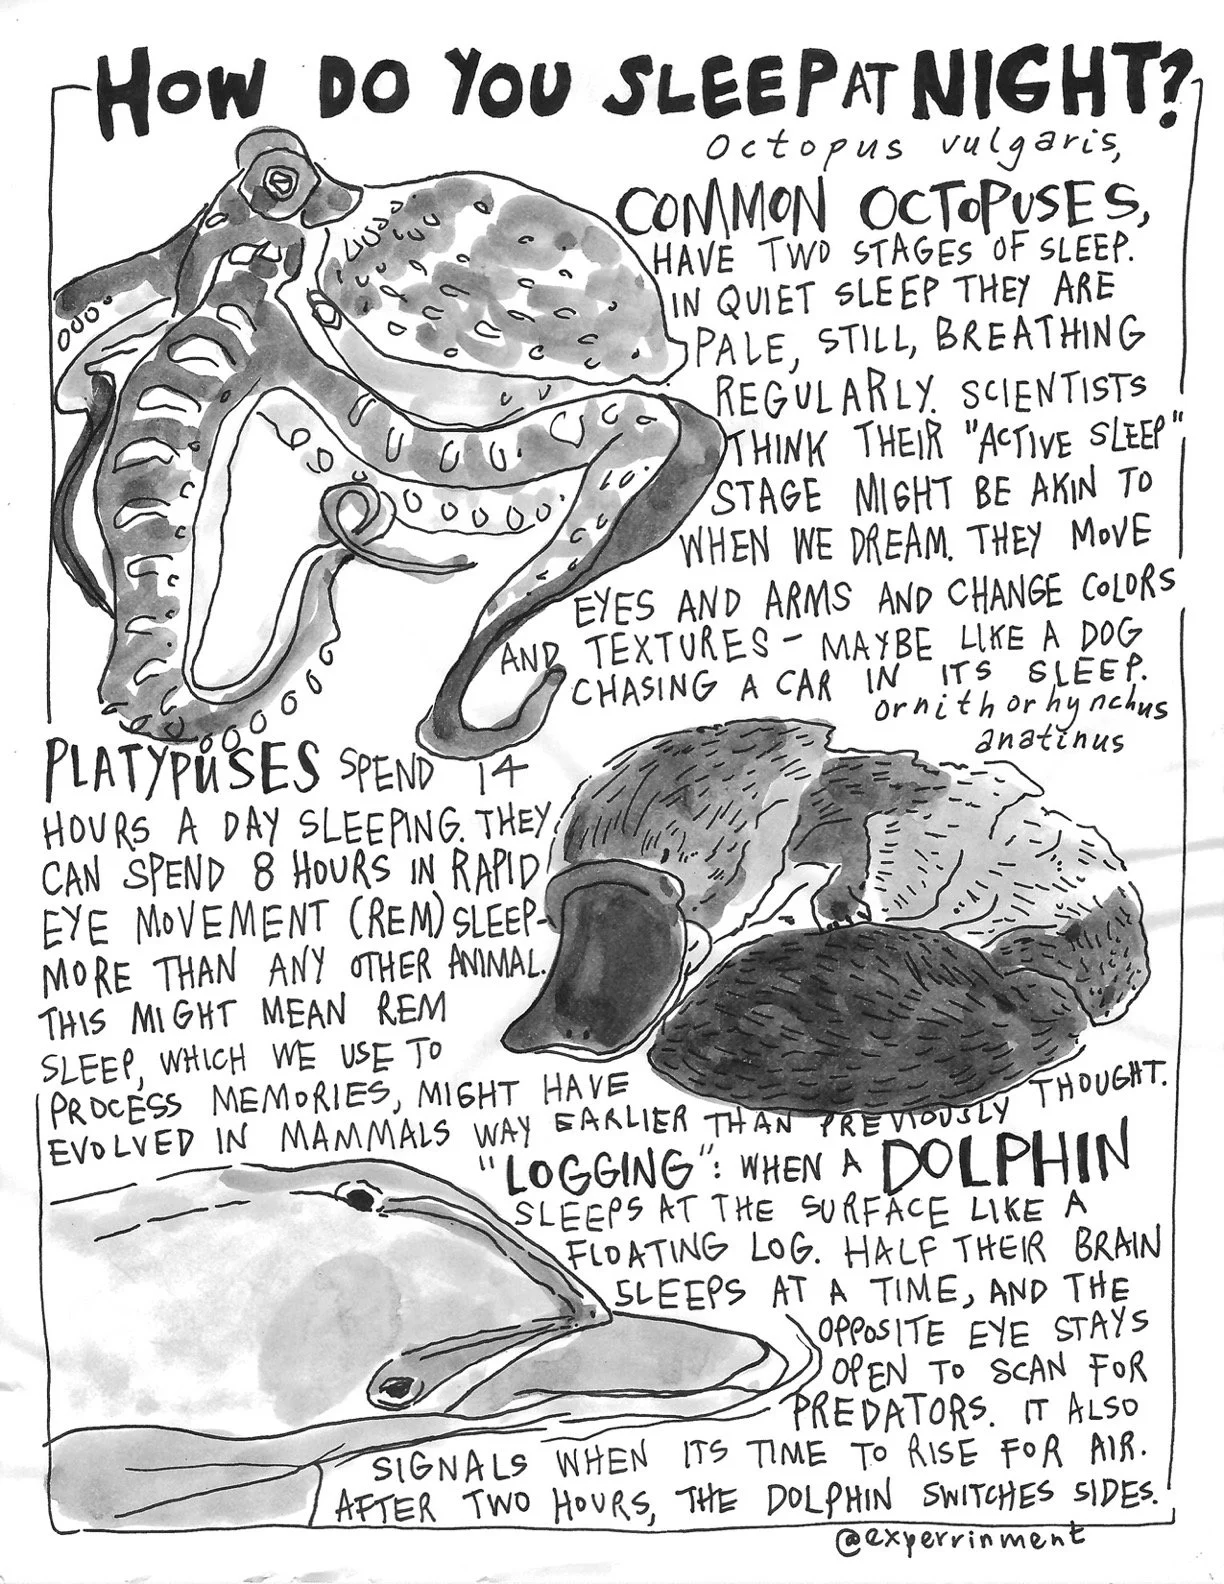 HOW DO YOU SLEEP AT NIGHT?
Octopus vulgaris,
COMMON OCTOPUSES,
HAVE TWO STAGES OF SLEEP.
IN QUIET SLEEP THEY ARE
PALE, STILL, BREATHING
REGULARLY. SCIENTISTS
THINK THEIR "ACTIVE SLEEP"
STAGE MIGHT BE AKIN TO
WHEN WE DREAM. THEY MOVE
EYES AND ARMS AND CHANGE COLORS
AND TEXTURES - MAYBE LIKE A DOG
CHASING A CAR IN ITS SLEEP.
ornithorhynchus
anatinus
PLATYPUSES SPEND 14
HOURS A DAY SLEEPING. THEY
CAN SPEND 8 HOURS IN RAPID
EYE MOVEMENT (REM) SLEEP-
MORE THAN ANY OTHER ANIMAL.
THIS MIGHT MEAN REM
SLEEP, WHICH WE USE TO
PROCESS MEMORIES, MIGHT HAVE
EVOLVED IN MAMMALS WAY EARLIER THAN PREVIOUSLY THOUGHT.
"LOGGING": WHEN A DOLPHIN
SLEEPS AT THE SURFACE LIKE A
FLOATING LOG. HALF THEIR BRAIN
SLEEPS AT A TIME, AND THE
OPPOSITE EYE STAYS
OPEN TO SCAN FOR
PREDATORS. IT ALSO
SIGNALS WHEN ITS TIME TO RISE FOR AIR.
AFTER TWO HOURS, THE DOLPHIN SWITCHES SIDES.
@experrinment